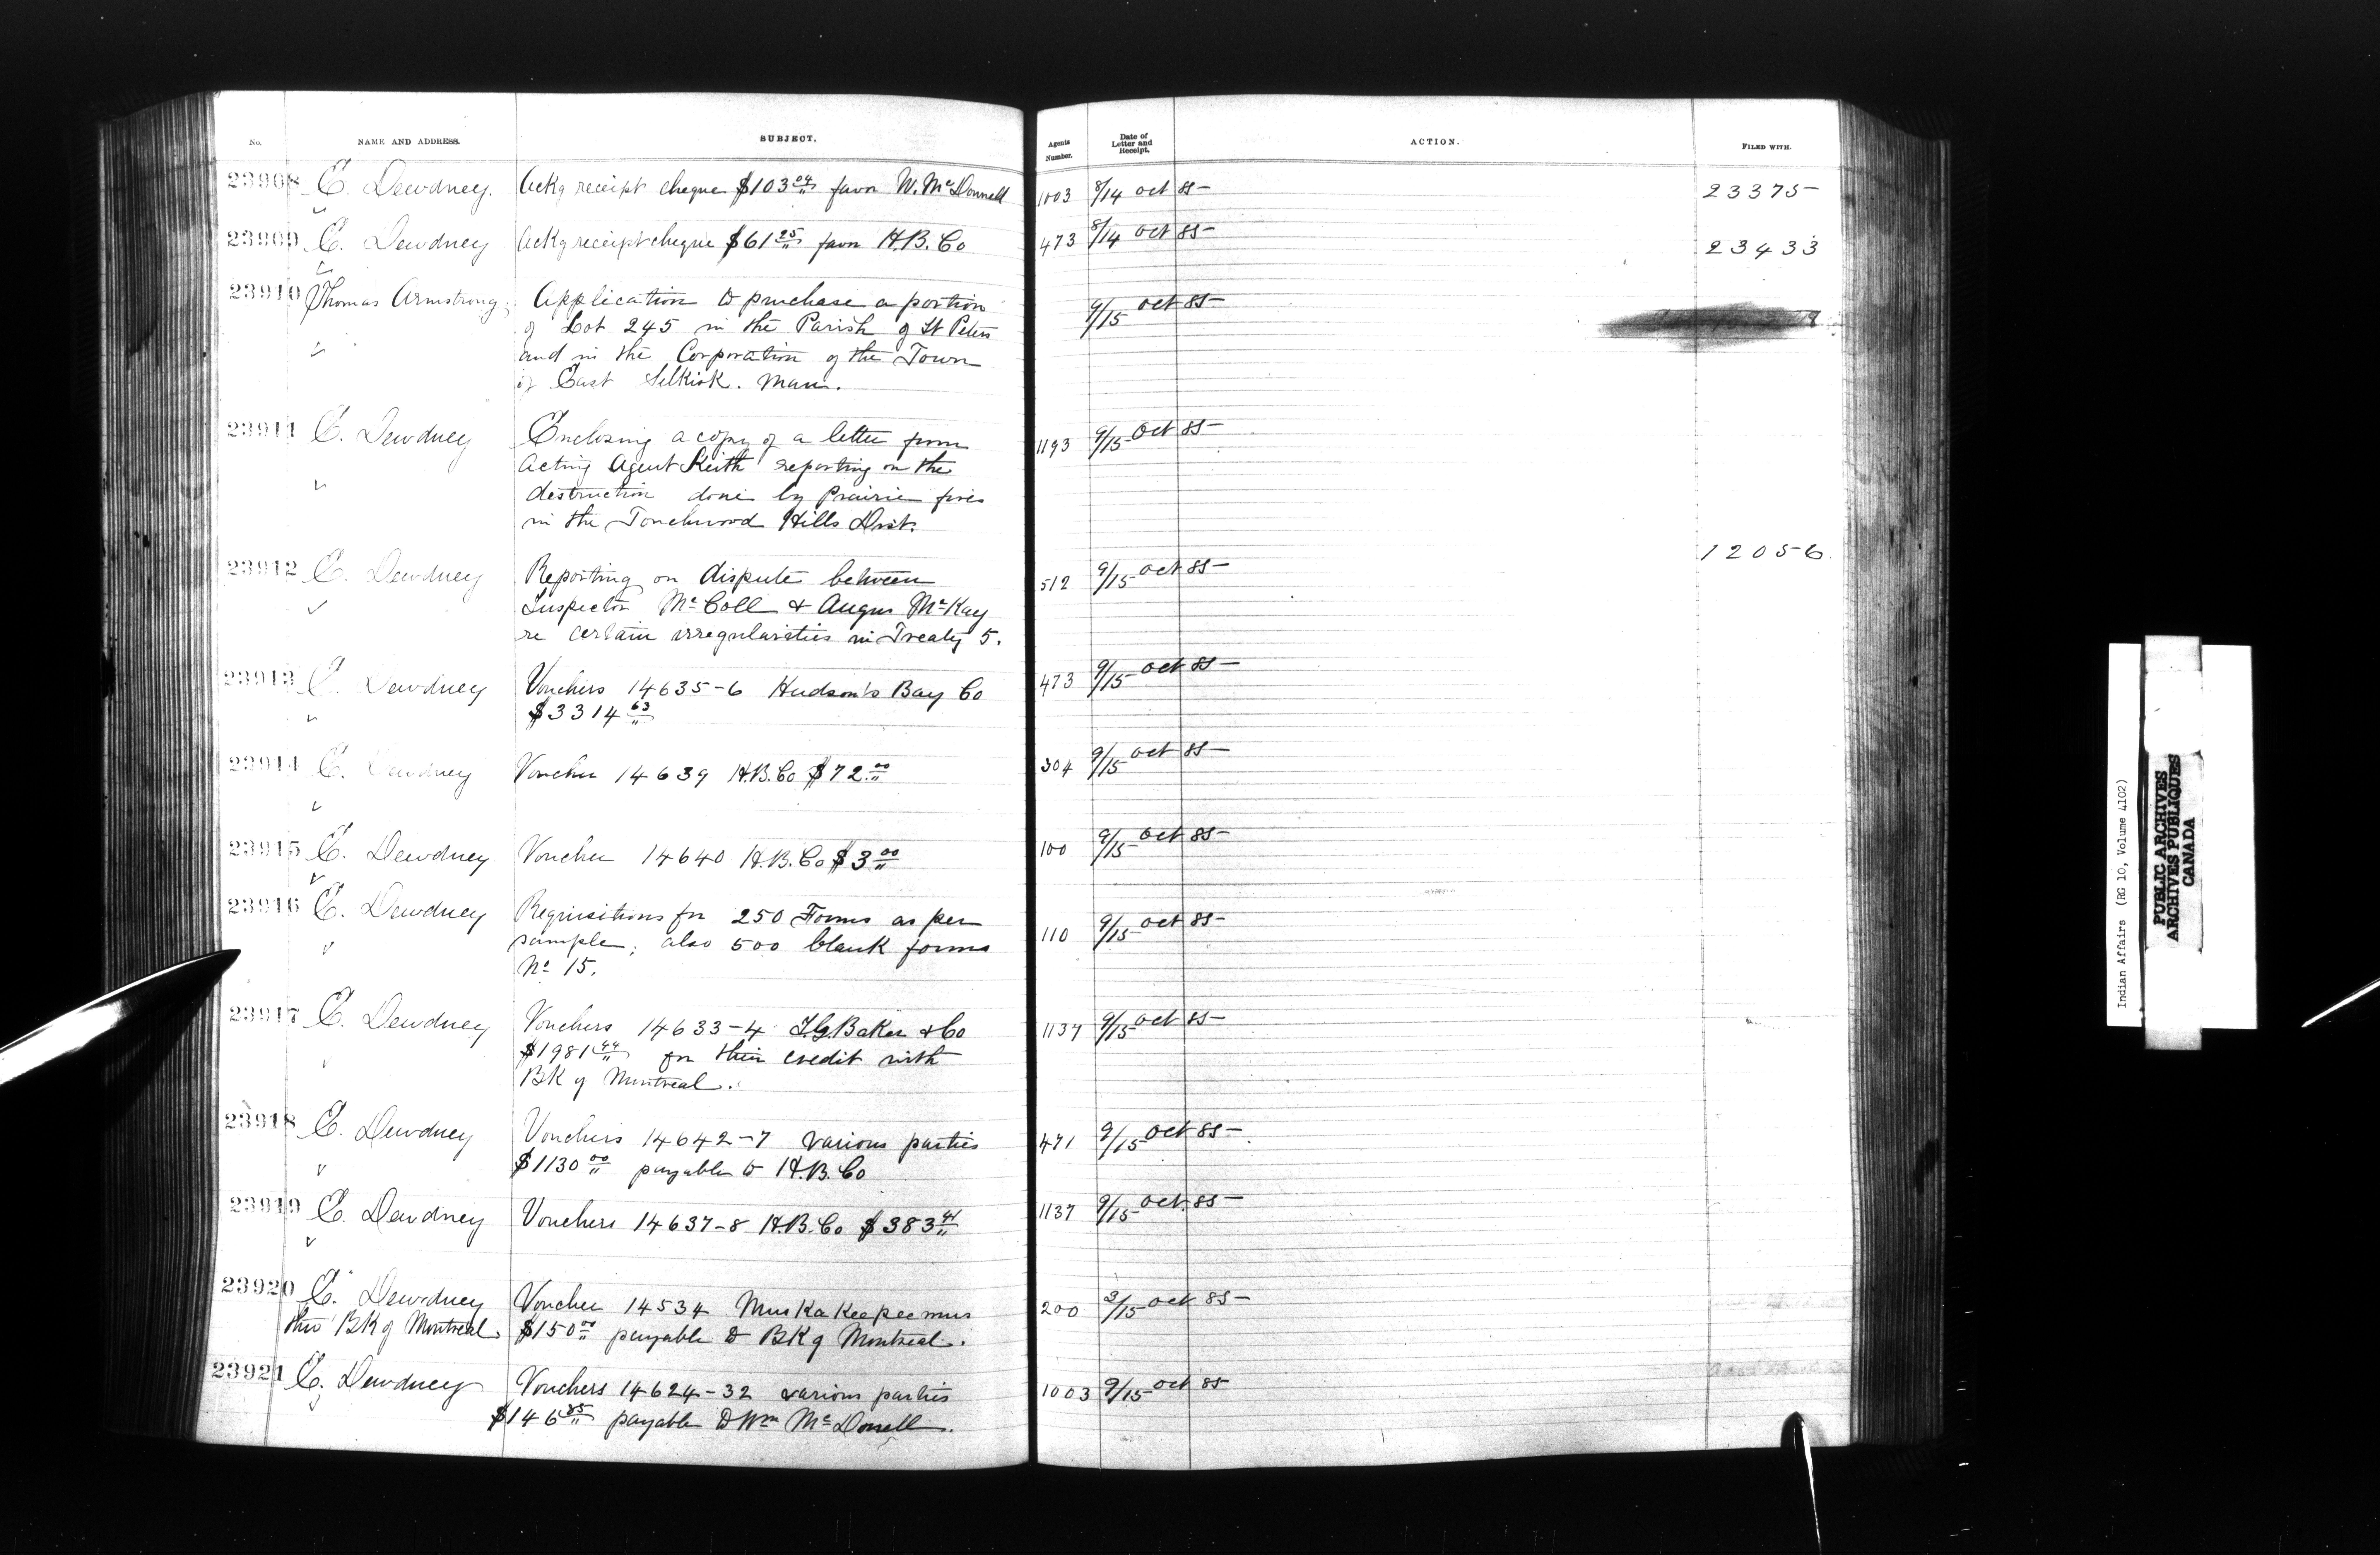 No. NAME AND ADDRESS. SUBJECT. Agents Number. Date of Letter and Receipt. ACTION. FILED WITH.
23908 E. Dewdney. Ackg receipt cheque $103 04 favor W. McDonnell 1003 8/14 Oct 85 23375
23909 E. Dewdney Ackg receipt cheque $61 25 favor H.B. Co 473 8/14 Oct 85 23433
23910 Thomas Armstrong. Application to purchase a portion 9/15 Oct 85
of Lot 245 in the Parish of St Peters
and in the Corporation of the Town
of East Selkirk. Man.
23911 E. Dewdney Enclosing a copy of a letter from 1193 9/15 Oct 85
Acting Agent Keith reporting on the
destruction done by Prairie fires
in the Touchwood Hills Dist.
23912 E. Dewdney Reporting on dispute between 512 9/15 Oct 85 12056
Inspector McColl & Angus McKay
re certain irregularities in Treaty 5.
23913 E. Dewdney Vouchers 14635-6 Hudson's Bay Co 473 9/15 Oct 85
$3314 63
23914 E. Dewdney Voucher 14639 H.B. Co $72.00 304 9/15 Oct 85
23915 E. Dewdney Voucher 14640 H.B. Co $3 00 100 9/15 Oct 85
23916 E. Dewdney Requisitions for 250 Forms as per 110 9/15 Oct 85
sample; also 500 blank forms
No 15.
23917 E. Dewdney Vouchers 14633-4 I.G. Baker & Co 1137 9/15 Oct 85
$1981 44 for their credit with
BK of Montreal.
23918 E. Dewdney Vouchers 14642-7 various parties 471 9/15 Oct 85
$1130 00 payable to H.B. Co
23919 E. Dewdney Vouchers 14637-8 H.B. Co $383 41 1137 9/15 Oct 85
23920 E. Dewdney Voucher 14534 Muskakeepeemus 200 3/15 Oct 85
thro' BK of Montreal. $150 00 payable to BK of Montreal.
23921 E. Dewdney Vouchers 14624-32 various parties 1003 9/15 Oct 85
$146 85 payable to Wm McDonell.
Indian Affairs (RG 10, Volume 4102)
PUBLIC ARCHIVES
ARCHIVES PUBLIQUES
CANADA